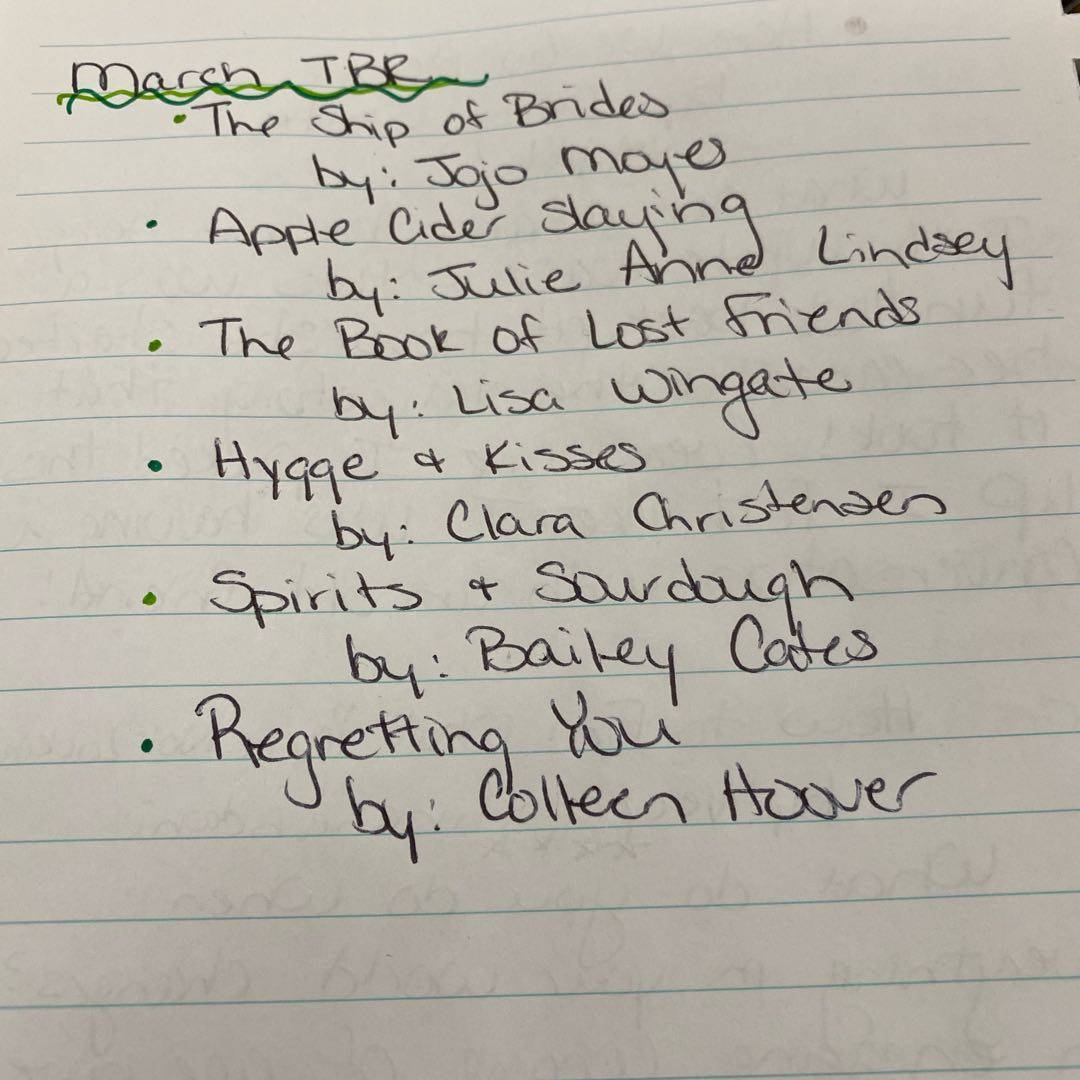 March TBR
• The Ship of Brides
by: Jojo Moyes
• Apple Cider Slaying
by: Julie Anne Lindsey
• The Book of Lost Friends
by: Lisa Wingate
• Hygge & Kisses
by: Clara Christensen
• Spirits & Sourdough
by: Bailey Cates
• Regretting You
by: Colleen Hoover